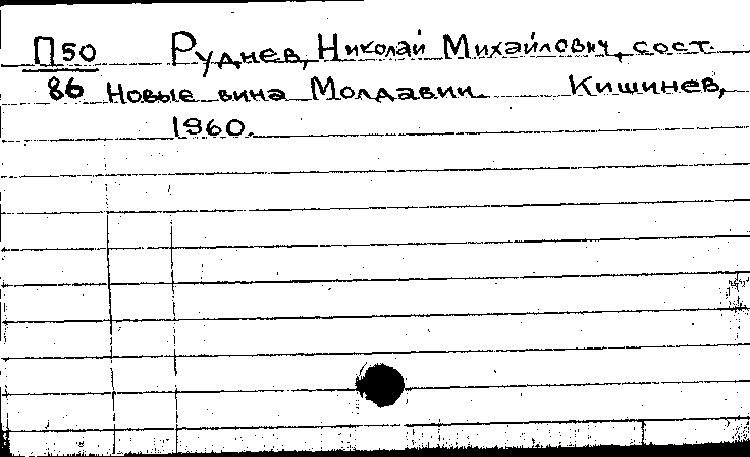 П50 Руднев, Николай Михайлович, сост.
86 Новые вина Молдавии. Кишинев,
1960.